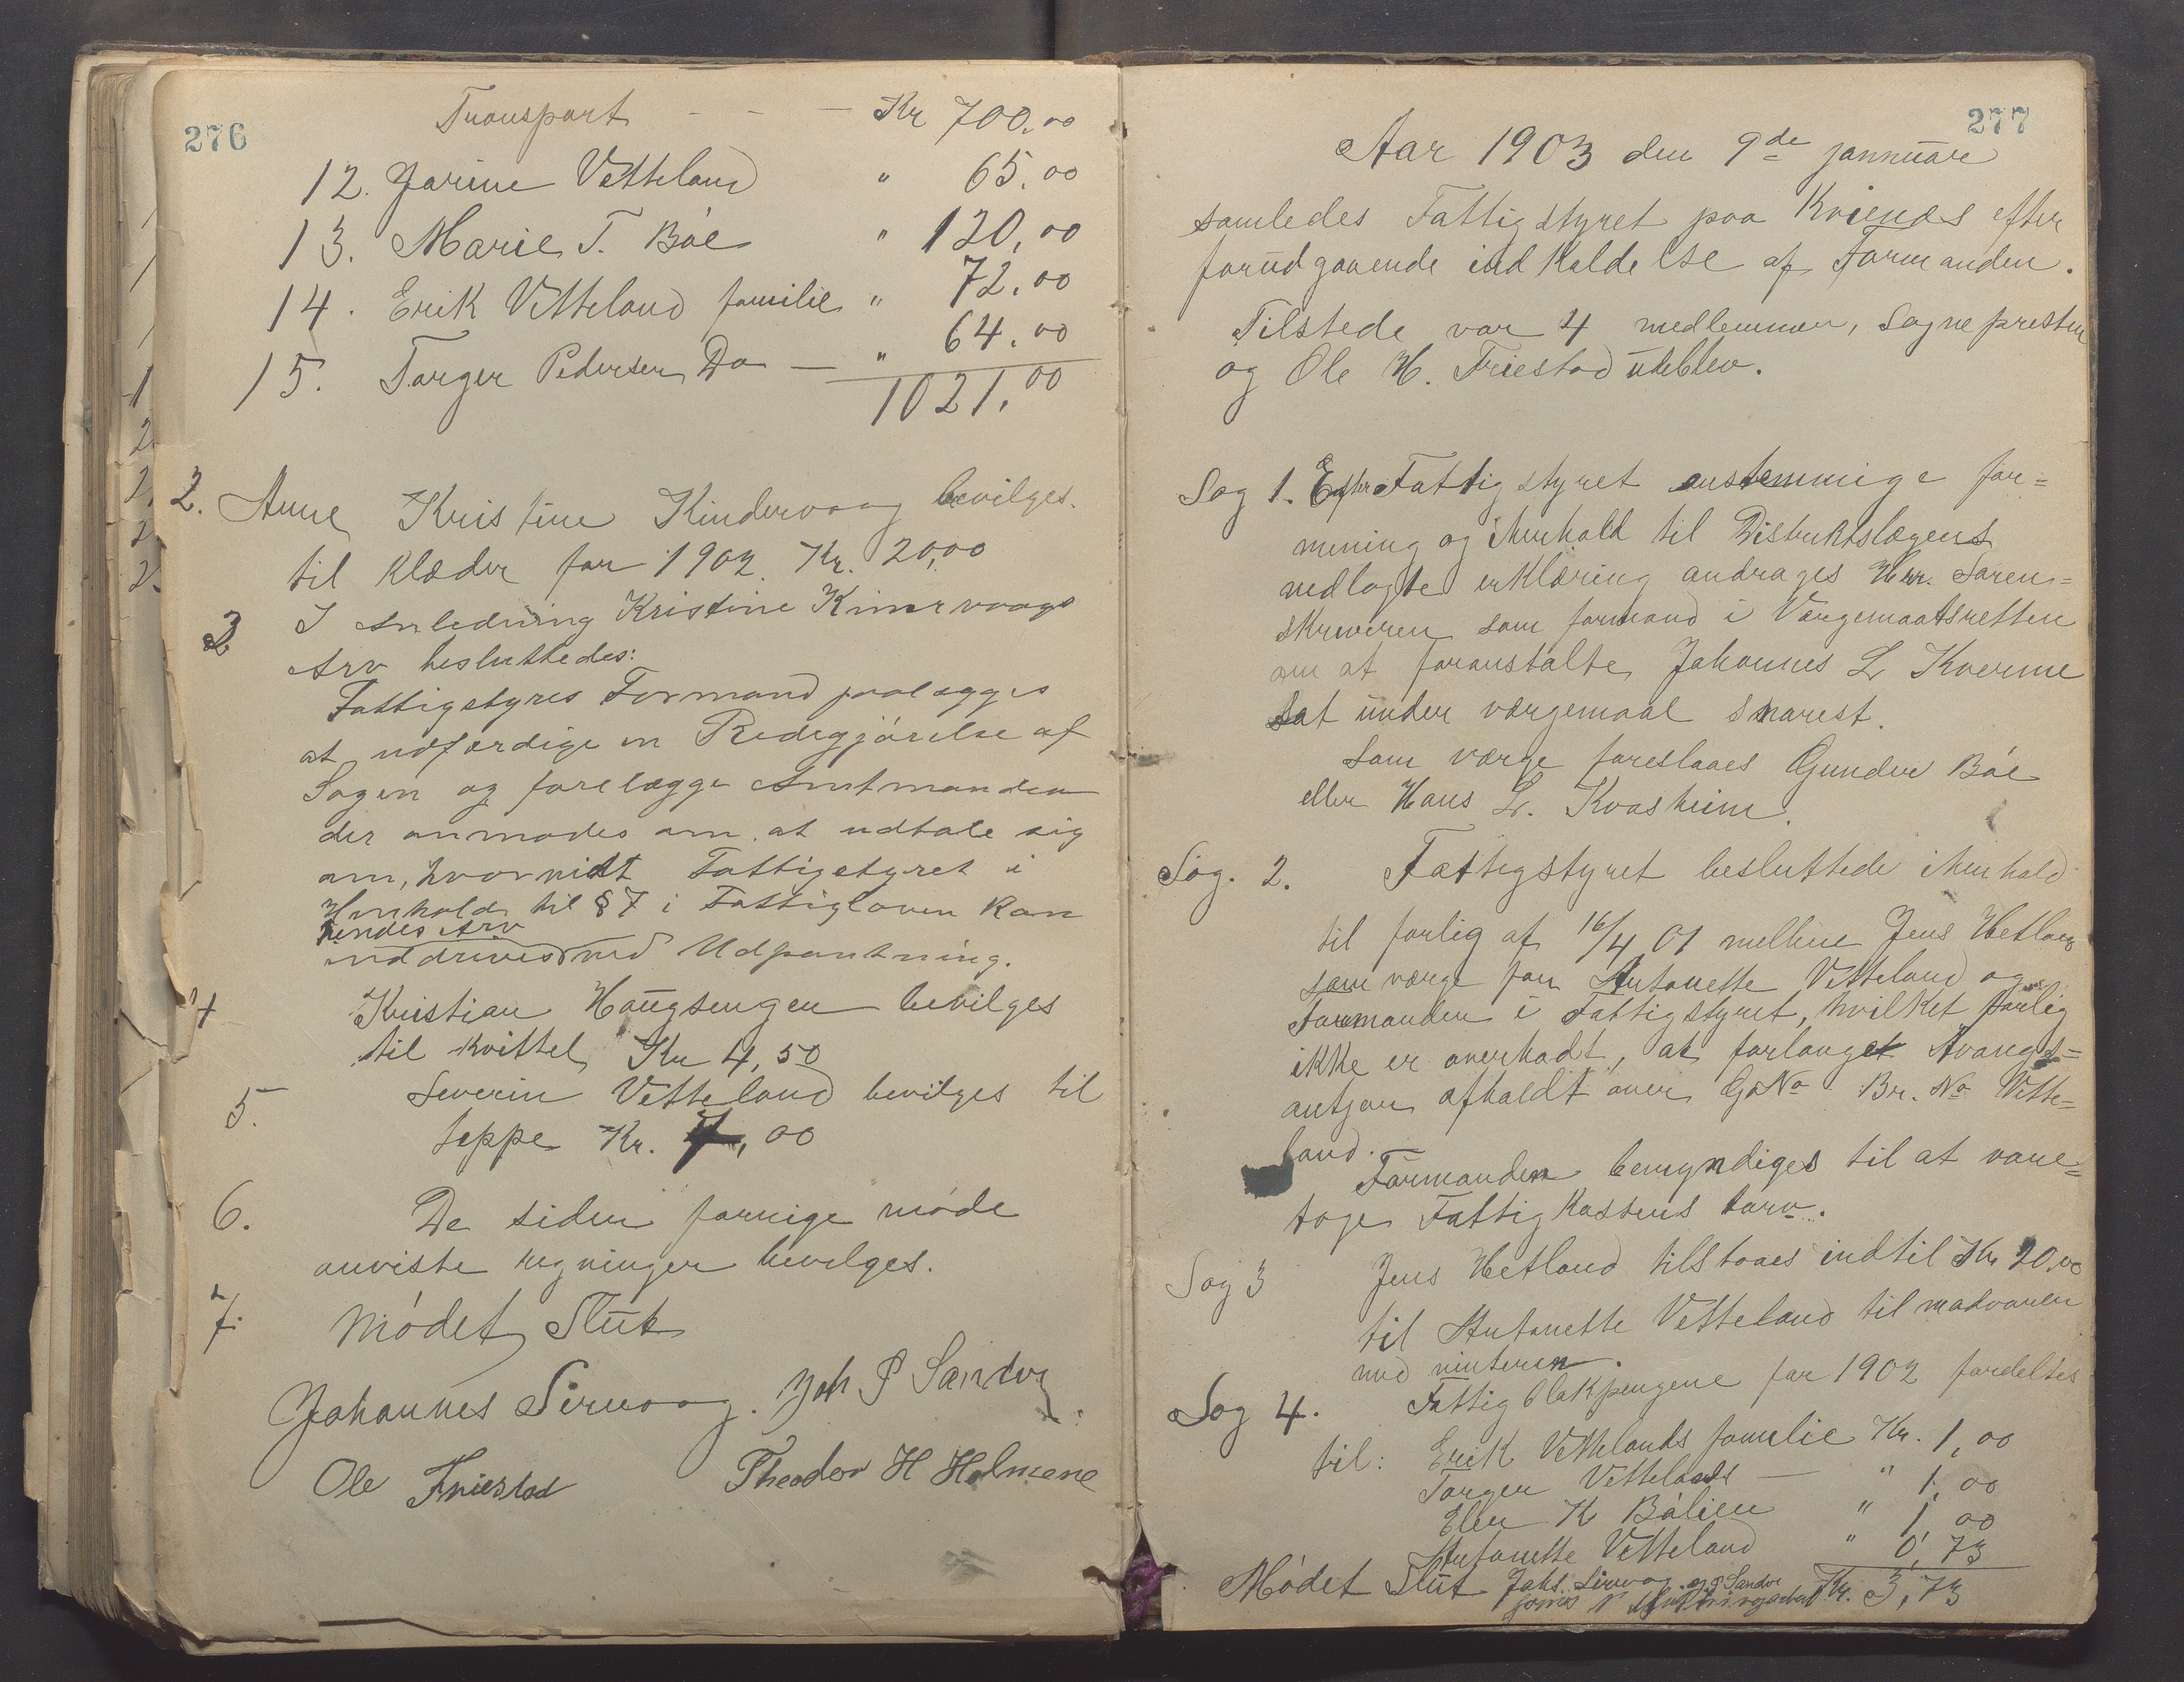 276
Transport - - - Kr 700,00
12. Jarine Vetteland " 65,00
13. Marie T. Bøe " 120,00
14. Erik Vetteland familie " 72,00
15. Targer Pedersen Do — " 64,00
1021,00
2. Anne Kristine Kindervaag bevilges
til klæder for 1902. Kr. 20,00
3 I Anledning Kristine Kinervaags
Arv besluttedes:
Fattigstyres Formand paalægges
at udfærdige en Redegjørelse af
Sagen og forelægge Amtmanden
der anmodes om at udtale sig
om, hvorvidt Fattigstyret i
Henhold til § 7 i Fattigloven kan
hendes Arv
inddrives ved Udpantning.
4 Kristian Haugsengen bevilges
til kvittel Kr 4,50
5. Severin Vetteland bevilges til
teppe Kr. 7,00
6. De siden forrige møde
anviste regninger bevilges.
7. Mødet Slut
Johannes Sirevaag. Joh P Sandve
Ole Friestad Theodor H Holmene
277
Aar 1903 den 9de jannuare
samledes Fattigstyret paa Kvienes efter
forudgaaende indkaldelse af Formanden.
Tilstede var 4 medlemmer, Sognepresten
og Ole H. Friestad udeblev.
Sag 1. Efter Fattigstyret enstemmige for=
mening og ihenhold til Distriktslægens
vedlagte erklæring andrages Herr. Soren=
skriveren som formand i Værgemaalsretten
om at foranstalte Johannes L Kverme
sat under værgemaal snarest.
Som værge foreslaaes Gunder Bøe
eller Hans L. Kvasheim.
Sag. 2. Fattigstyret besluttede ihenhold
til forlig af 16/4 01 mellem Jens Hetland
som værge for Antonette Vetteland og
Formanden i Fattigstyret, hvilket forlig
ikke er overhodt, at forlanget tvangs=
autjon afholdt over G No Br. No Vette=
land.
Formanden bemyndiges til at vare=
tage Fattigkassens tarv.
Sag 3 Jens Hetland tilstaaes indtil Kr 20,00
til Antonette Vetteland til madvarer
ved vinteren.
Sag 4. Fattigblokpengene for 1902 fordeltes
til: Erik Vettelands familie Kr. 1,00
Torger Vettelands — " 1,00
Elen K Bølien " 1,00
Antonette Vetteland " 0,73
Mødet Slut Johs. Sirevag. J P Sandve Kr. 3,73